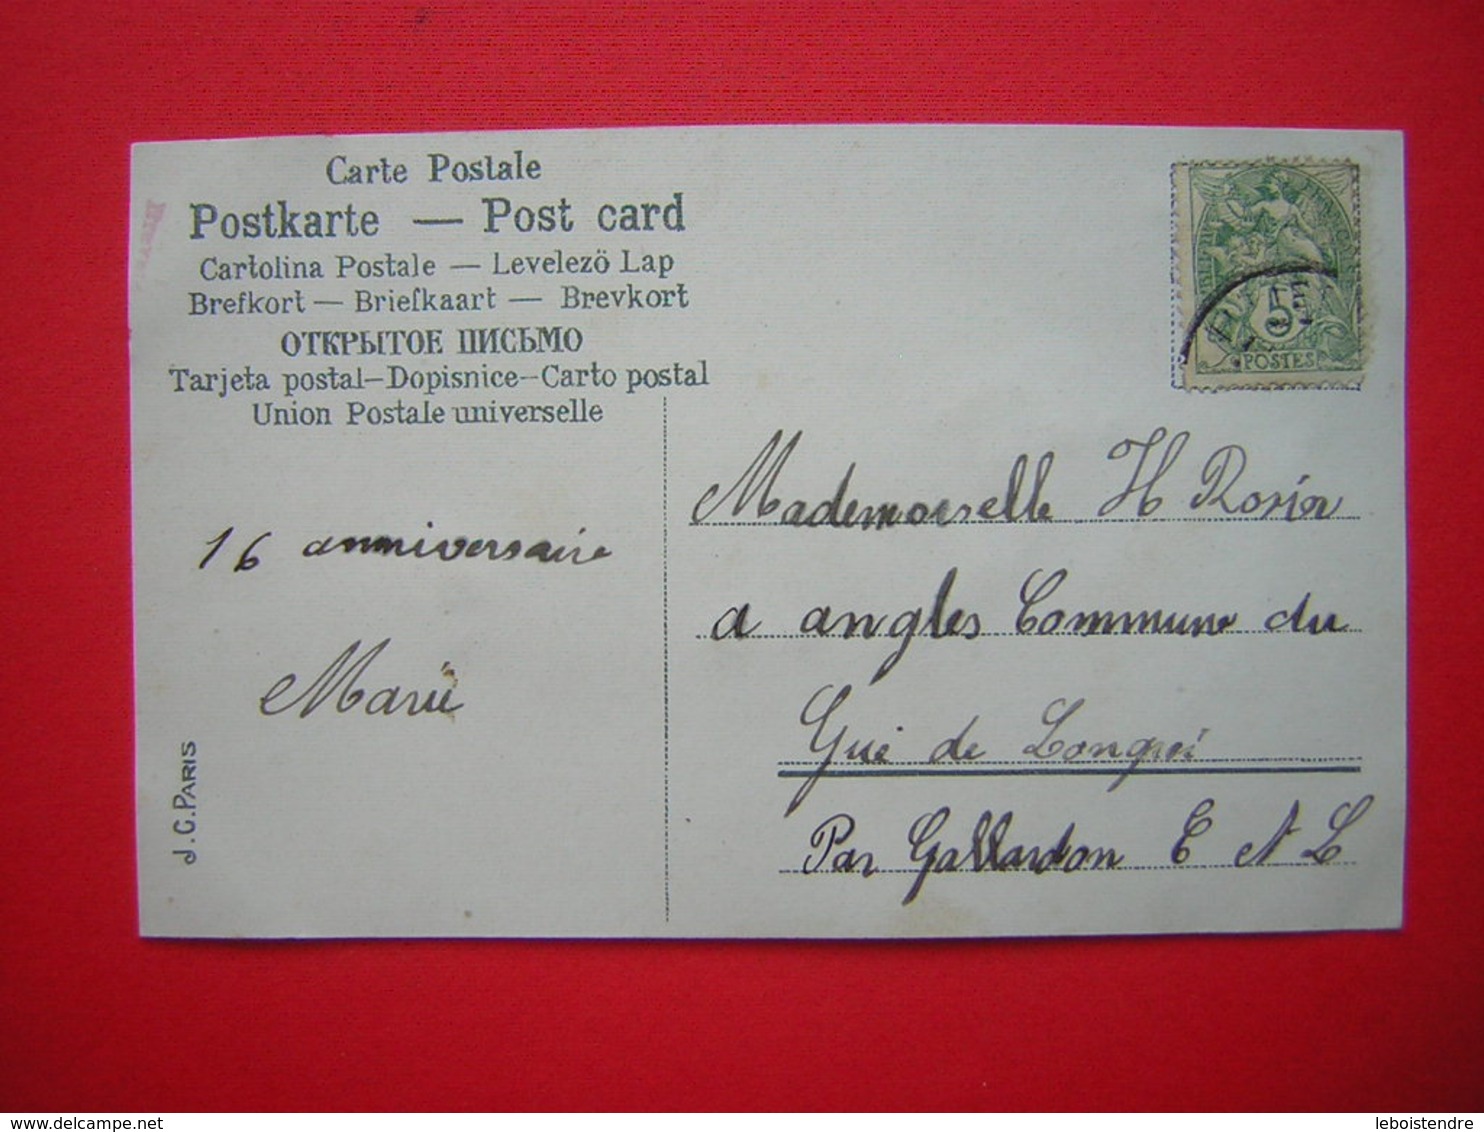 Carte Postale
Postkarte — Post card
Cartolina Postale — Levelezö Lap
Brefkort — Briefkaart — Brevkort
ОТКРЫТОЕ ПИСЬМО
Tarjeta postal–Dopisnice–Carto postal
Union Postale universelle
16 anniversaire
Marie
J.C. PARIS
5
POSTES
Mademoiselle H Rosin
a angles Commune du
Gué de Longroi
Par Gallardon E et L
delcampe.net
leboistendre